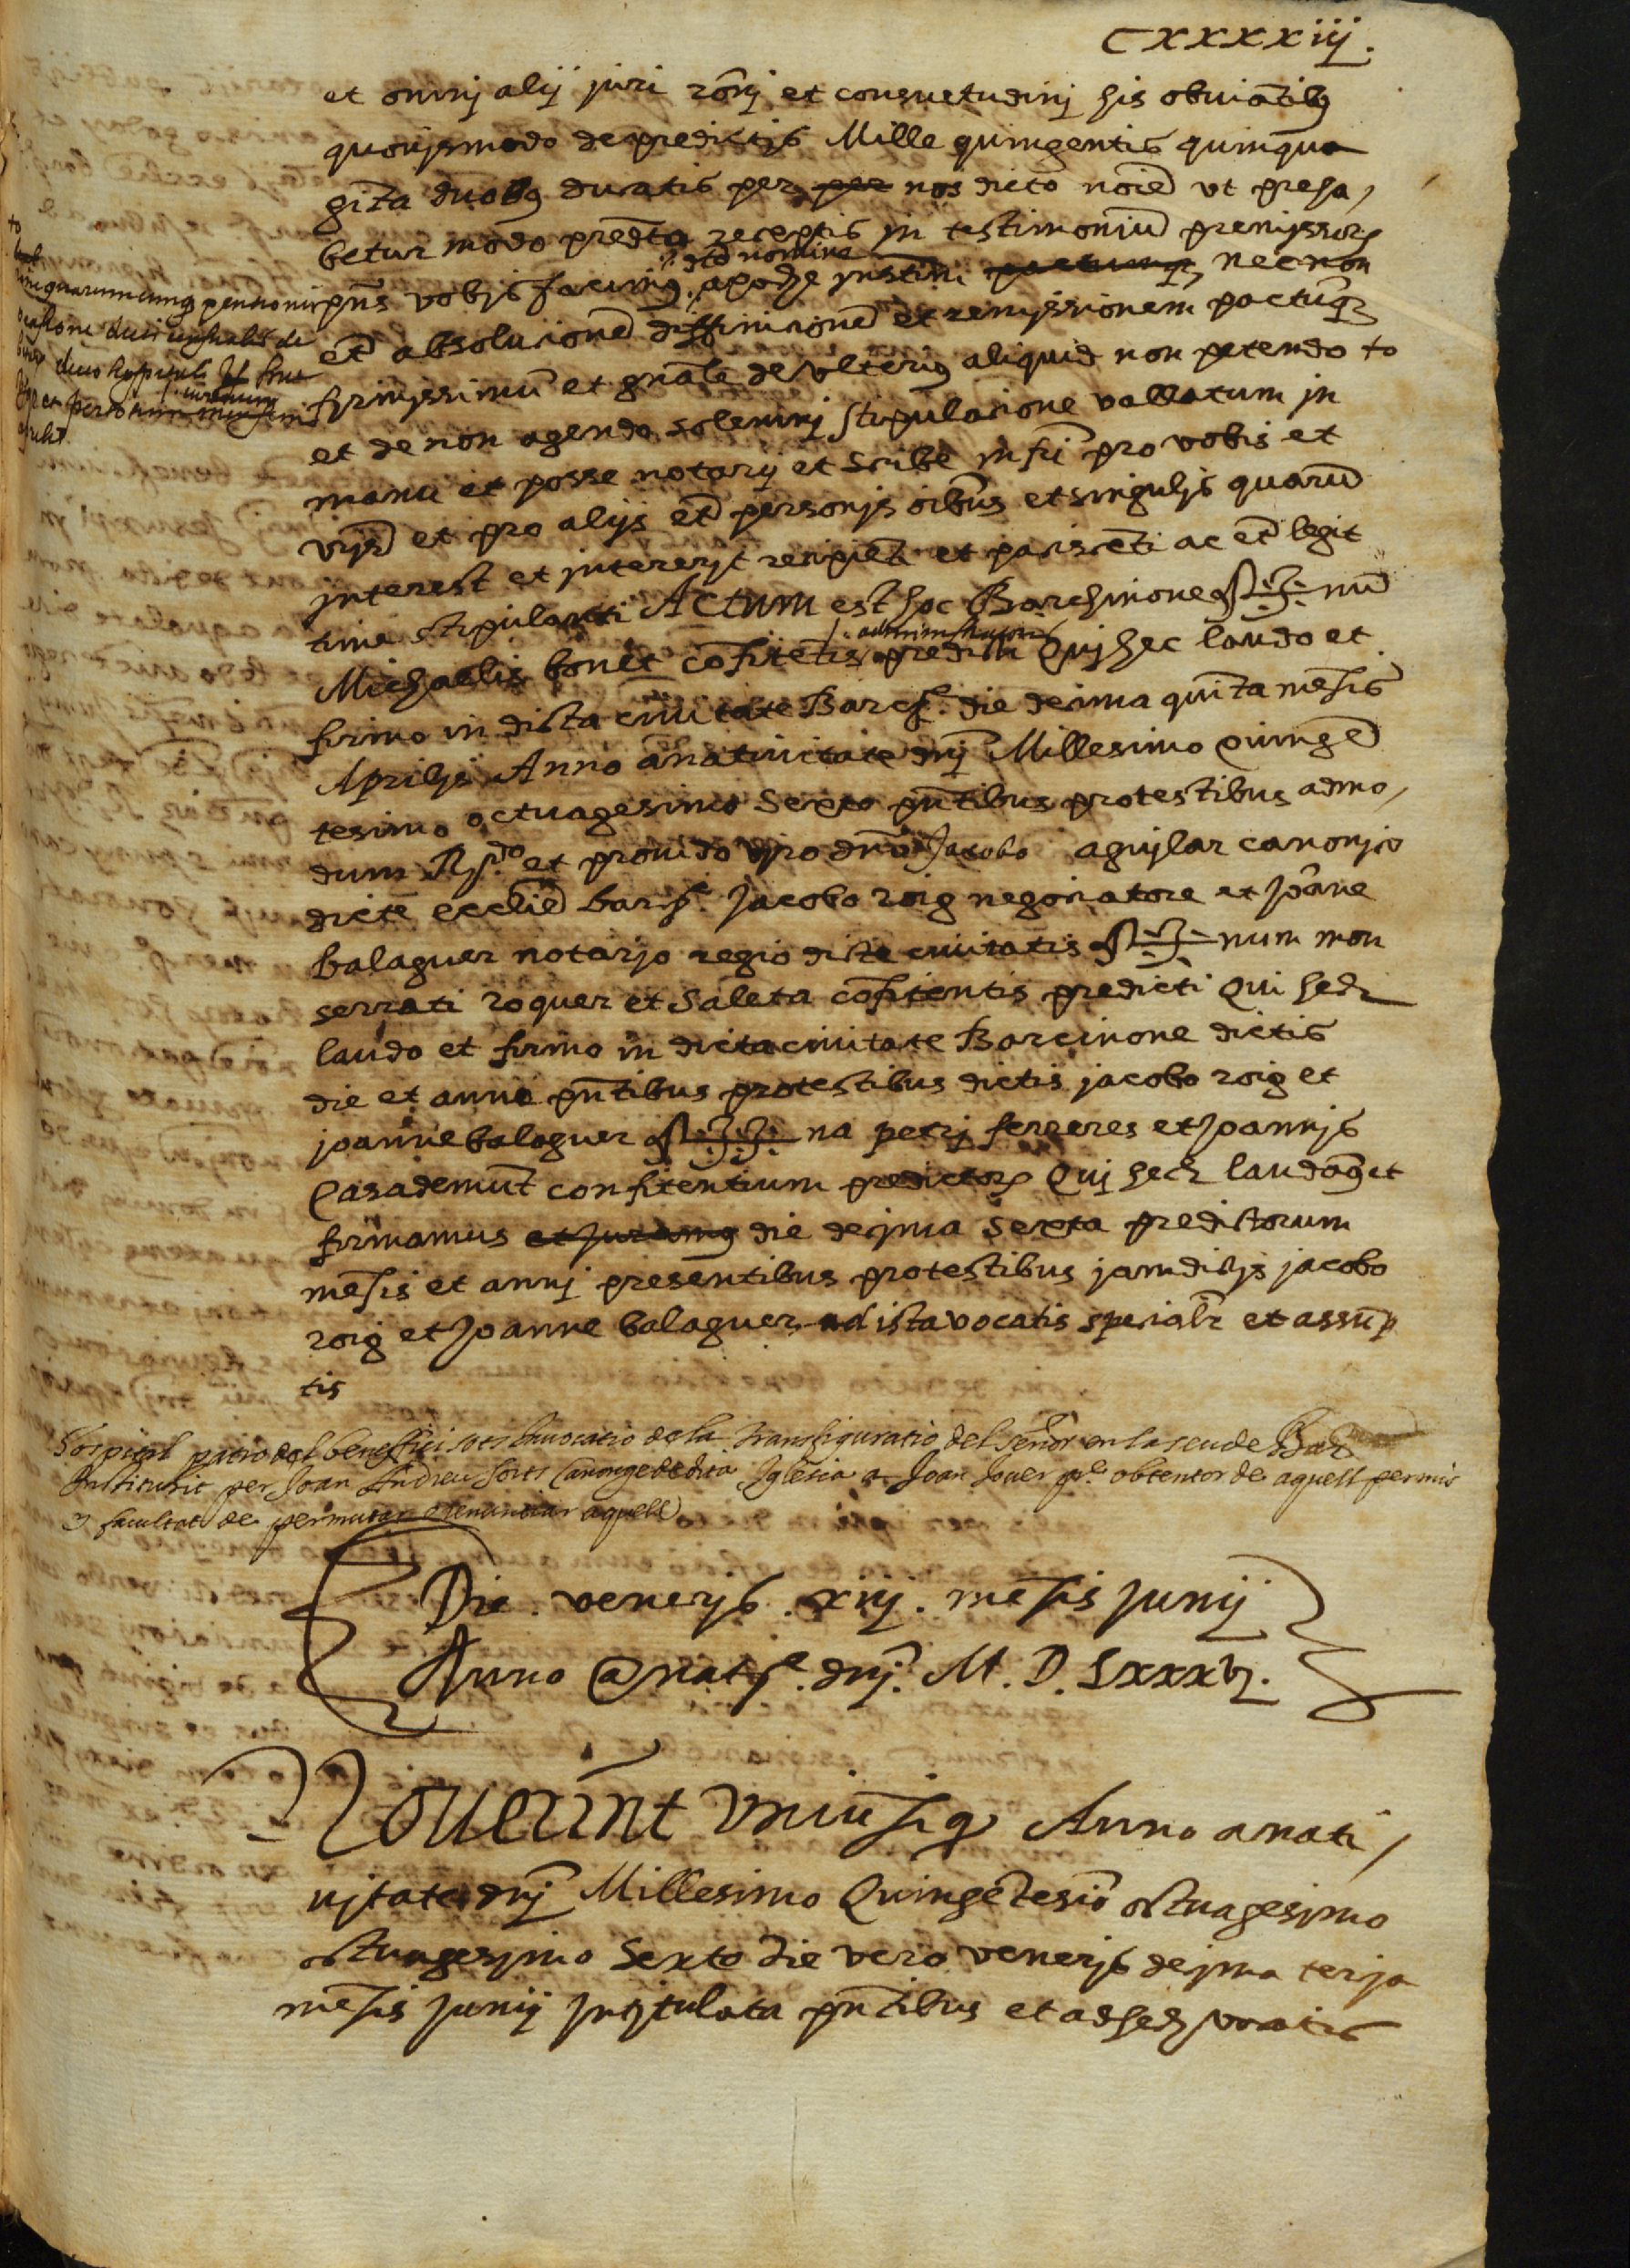 CXXXXiij.
et omnj alij juri rõnj et consuetudinj his obviãtibꝰ
quovismodo de predictis Mille quingentis quinqua
ginta duobꝰ ducatis per per nos dicto noĩe ut preha,
betur modo predicto receptis in testimoniũ premissorꝝ
dto nomine
pñs vobis facimꝰ apoche instrũ pactumqꝫ nec non
et absolucionẽ diffinicionẽ et remissionem pactũqꝫ
firmissimũ et gñale de ulteriꝰ aliquid non petendo to
et de non agendo solemnj stipulacione vallatum in
manu et posse notarij et scribe infri pro vobis et
vr̃is et pro alijs etiã personis oĩbus et singulis quarũ
interest et intererit recipiẽti et paciscẽti ac etiã legit
time stipulanti Actum est hoc Barchinone Sig+nũ
administratoris
Michaelis bonet cõfitẽtis predicti Qui hec laudo et
firmo in dicta civitate Barcħ. die decima quĩta mẽsis
Aprilis Anno a nativitate dñj Millesimo Quingẽ
tesimo octuagesimo Sexto pñtibus pro testibus admo,
dum R.do et provido viro dño Jacobo aguylar canonico
dictẽ ecclie barcħ. Jacobo roig negociatore et Joãne
balaguer notario regio dicte civitatis Sig+num mon
serrati roquer et Saleta cõfitentis predicti Qui hec
laudo et firmo in dicta civitate Barcinone dictis
die et anno pñtibus pro testibus dictis jacobo roig et
joanne balaguer Sig++na petri fereres et Joannis
Casademũt confitentium predictorꝝ Qui hec laudamꝰ et
firmamus et juramꝰ die decima Sexta predictorum
mẽsis et annj presentibus pro testibus jamdictis jacobo
roig et Joanne balaguer ad ista vocatis specialr̃ et assũp
tis
to
quarumcumqꝫ pensionũ
censualis de
dicto hospitali
Hospital patro del benefici sots invocatio de la Transfiguratio del señor en la seu de Barna
Instituhit per Joan Andreu Sorts Canonge de dita Iglesia a Joan Jover pre. obtentor de aquell permis
y facultat de permutar o renunciar aquell
Die . veneris . xiij . mẽsis Junij
Anno a natte. dñj. M. D. Lxxxvj.
Noverint Universi qꝫ Anno a nati,
vitate dñj Millesimo Quingẽtesio octuagesimo
octuagesimo Sexto die vero veneris decima tercia
mẽsis Junij intitulata pñtibus et ad hec vocatis